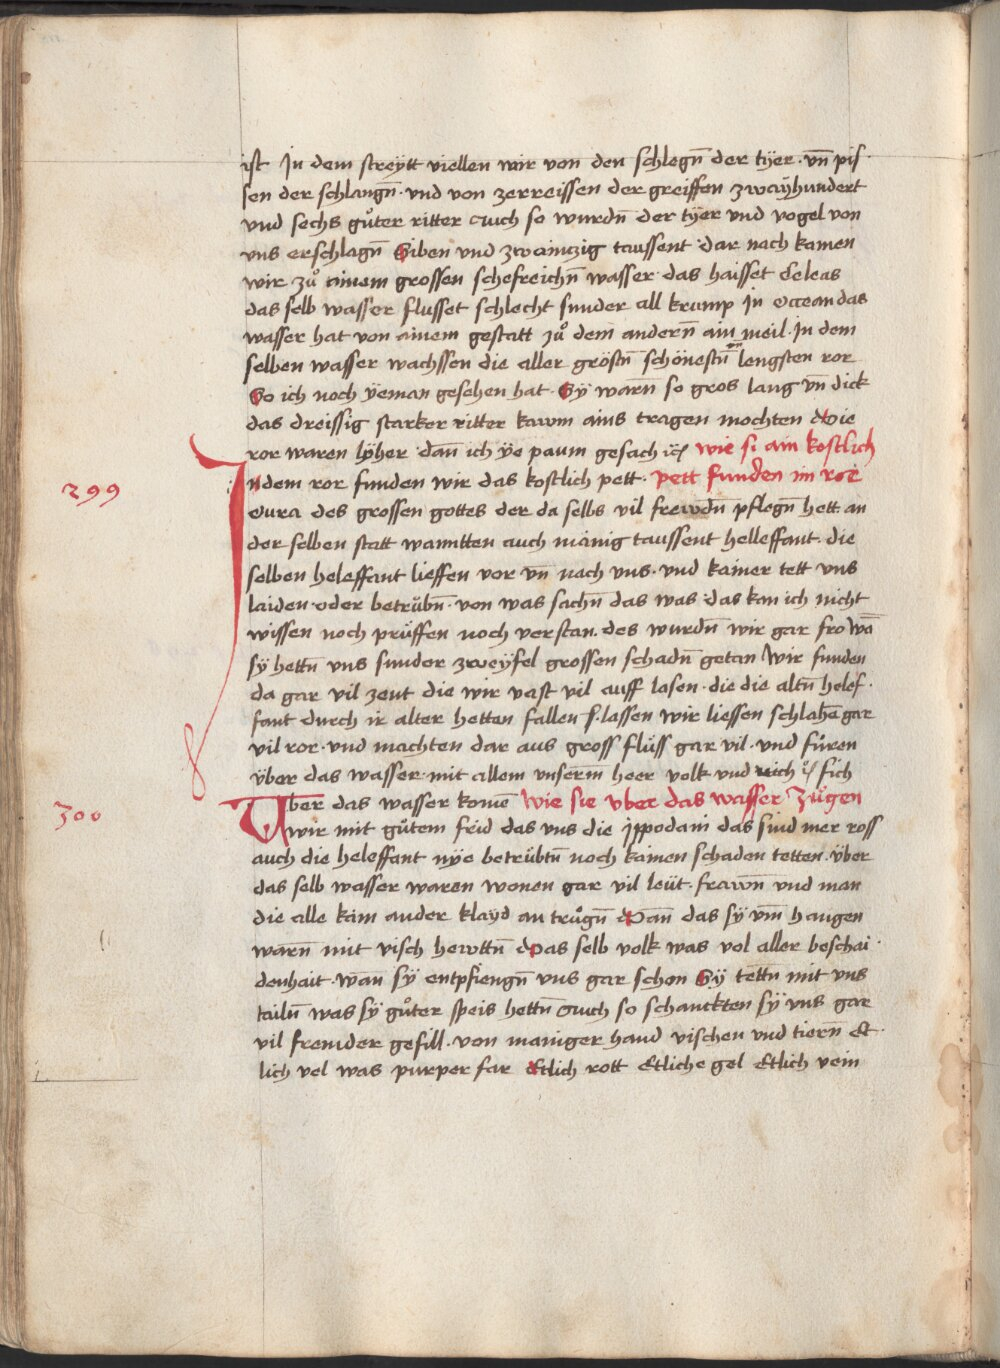 ist In dem streytt viellen wir von den schlegn̄ der tyer · vn̄ pis
sen der schlangn̄ · und von zerreissen der greiffen zwayhundert
vnd sechs gůter ritter Auch so wurdn̄ der tyer und vogel von
uns erschlagn̄ Siben und zwainczig taussent · dar nach kamen
wir zů ainem grossen schefreichn̄ wasser · das haisset deleas
das selb wasser flusset schlecht sunder all krump In occean das
wasser hat von ainem gestatt zů dem andern̄ ain meil · In dem
selben wasser wachssen die aller gröstn̄ schönestn̄ lengsten ror
So ich noch yeman gesehen hat · Sÿ warn̄ so gros lang vn̄ dick
das dreissig starker ritter kawm ains tragen mochten Die
ror waren hȳher · dan̄ ich ÿe paum gesach wie si ain kostlich
299
Indem ror funden wir das kostlich pett · pett funden im roe
dura des grossen gottes der da selbs vil frewdn̄ pflegn̄ hett an
der selben statt wanntten auch mänig taussent helleffant · die
selben heleffant lieffen vor vn̄ nach uns · und kainer tett uns
laiden · oder betrübn̄ · von was sachn̄ das was · das kan ich nicht
wissen noch prüffen noch verstan · des wurdn̄ wir gar fro wā
sy hettn̄ uns sunder zweyfel grossen schadn̄ getan Wir funden
da gar vil zent die wir vast vil auff lasen · die die altn̄ helef ·
fant durch ir alter hetten fallen lassen wir liessen schlahē gar
vil ror · und machten dar aus gross flüss gar vil · und fůren
über das wasser · mit allem unserm heer volk und vich
300
Vber das wasser komē wie sie vber das wasser zůgen
wir mit gůtem frid das uns die ippodani das sind mer ross
auch die heleffant nÿe betrübtn̄ noch kainen schaden tetten · über
das selb wasser waren wonen gar vil leüt · frawn̄ und man
die alle kain ander klayd an trůgn̄ Dan̄ das sÿ vm̄ hangen
warn̄ mit visch hewttn̄ Das selb volk was vol aller beschai ·
denhait · wan sÿ entpfiengn̄ uns gar schon Sÿ tettn̄ mit uns
tailn̄ was sÿ gůter speis hettn̄ Auch so schanckten sÿ uns gar
vil fremder gefill · von maniger hand vischen und tiern̄ Et ·
lich vel was purper far Etlich rott Etliche gel Etlich vein